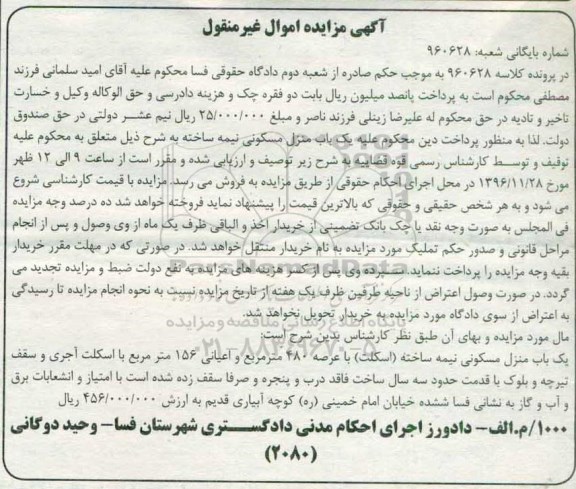 آگهی مزایده اموال غیرمنقول
شماره بایگانی شعبه: ۹۶۰۶۲۸
در پرونده کلاسه ۹۶۰۶۲۸ به موجب حکم صادره از شعبه دوم دادگاه حقوقی فسا محکوم علیه آقای امید سلمانی فرزند
مصطفی محکوم است به پرداخت پانصد میلیون ریال بابت دو فقره چک و هزینه دادرسی و حق الوکاله وکیل و خسارت
تاخیر و تادیه در حق محکوم له علیرضا زینلی فرزند ناصر و مبلغ ۲۵/۰۰۰/۰۰۰ ریال نیم عشر دولتی در حق صندوق
دولت. لذا به منظور پرداخت دین محکوم علیه یک باب منزل مسکونی نیمه ساخته به شرح ذیل متعلق به محکوم علیه
توقیف و توسط کارشناس رسمی قوه قضاییه به شرح زیر توصیف و ارزیابی شده و مقرر است از ساعت ۹ الی ۱۲ ظهر
مورخ ۱۳۹۶/۱۱/۲۸ در محل اجرای احکام حقوقی از طریق مزایده به فروش می رسد. مزایده با قیمت کارشناسی شروع
می شود و به هر شخص حقیقی و حقوقی که بالاترین قیمت را پیشنهاد نماید فروخته خواهد شد ده درصد وجه مزایده
فی المجلس به صورت وجه نقد یا چک بانک تضمینی از خریدار اخذ و الباقی ظرف یک ماه از وی وصول و پس از انجام
مراحل قانونی و صدور حکم تملیک مورد مزایده به نام خریدار منتقل خواهد شد. در صورتی که در مهلت مقرر خریدار
بقیه وجه مزایده را پرداخت ننماید. سپرده وی پس از کسر هزینه های مزایده به نفع دولت ضبط و مزایده تجدید می
گردد. در صورت وصول اعتراض از ناحیه طرفین ظرف یک هفته از تاریخ مزایده نسبت به نحوه انجام مزایده تا رسیدگی
به اعتراض از سوی دادگاه مورد مزایده به خریدار تحویل نخواهد شد.
مال مورد مزایده و بهای آن طبق نظر کارشناس بدین شرح است:
یک باب منزل مسکونی نیمه ساخته (اسکلت) با عرصه ۴۸۰ مترمربع و اعیانی ۱۵۶ متر مربع با اسکلت آجری و سقف
تیرچه و بلوک با قدمت حدود سه سال ساخت فاقد درب و پنجره و صرفا سقف زده شده است با امتیاز و انشعابات برق
و آب و گاز به نشانی فسا ششده خیابان امام خمینی (ره) کوچه آبیاری قدیم به ارزش ۴۵۶/۰۰۰/۰۰۰ ریال
۱۰۰۰/م.الف- دادورز اجرای احکام مدنی دادگستری شهرستان فسا- وحید دوگانی
(۲۰۸۰)